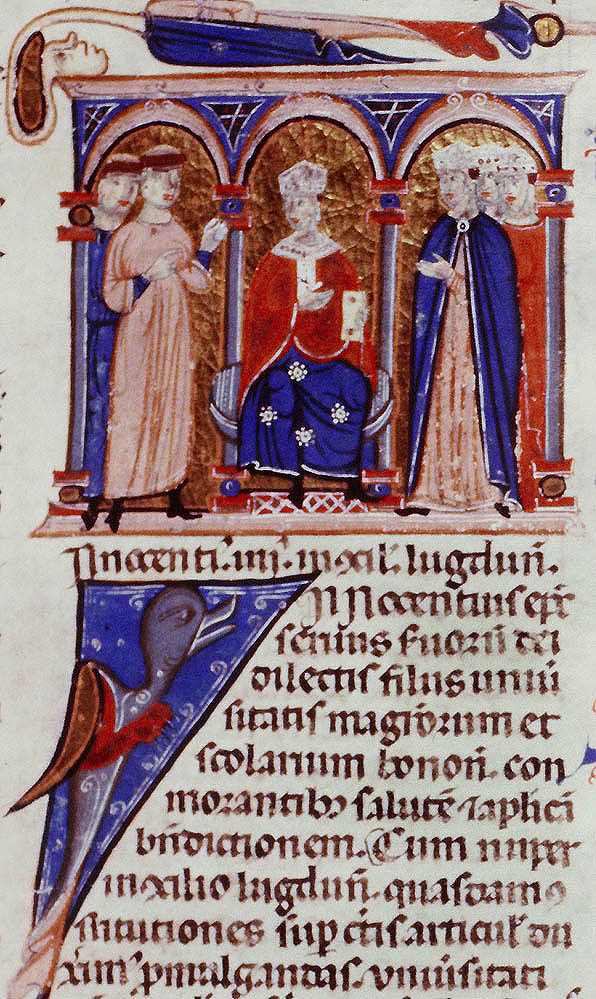 Innocenti. iiii. in cōcil. lugdun̄.
INNocentius ep̄c
seruus seruorū dei
dilectis filiis uniū
sitatis magistrorum et
scolarium bonon̄. con
morantibꝫ salutē ⁊ aplicā
bn̄dictionem. Cum nuper
in cōcilio lugdun̄. quasdam ꝯ
stitutiones sup̄ c̄tis articul̓ du
xim̓ ꝓmulgandas. uniūsitati